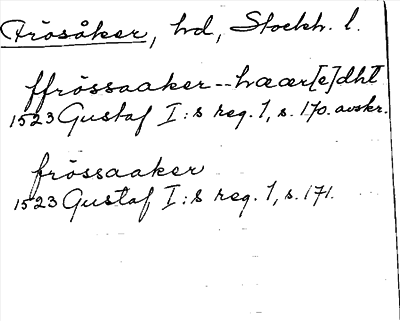 Frösåker, hd, Stockh. l.
ffrössaaker--hæær[e]dhit
1523 Gustaf I:s reg. 1, s. 170. avskr.
frössaaker
1523 Gustaf I:s reg. 1, s. 171.